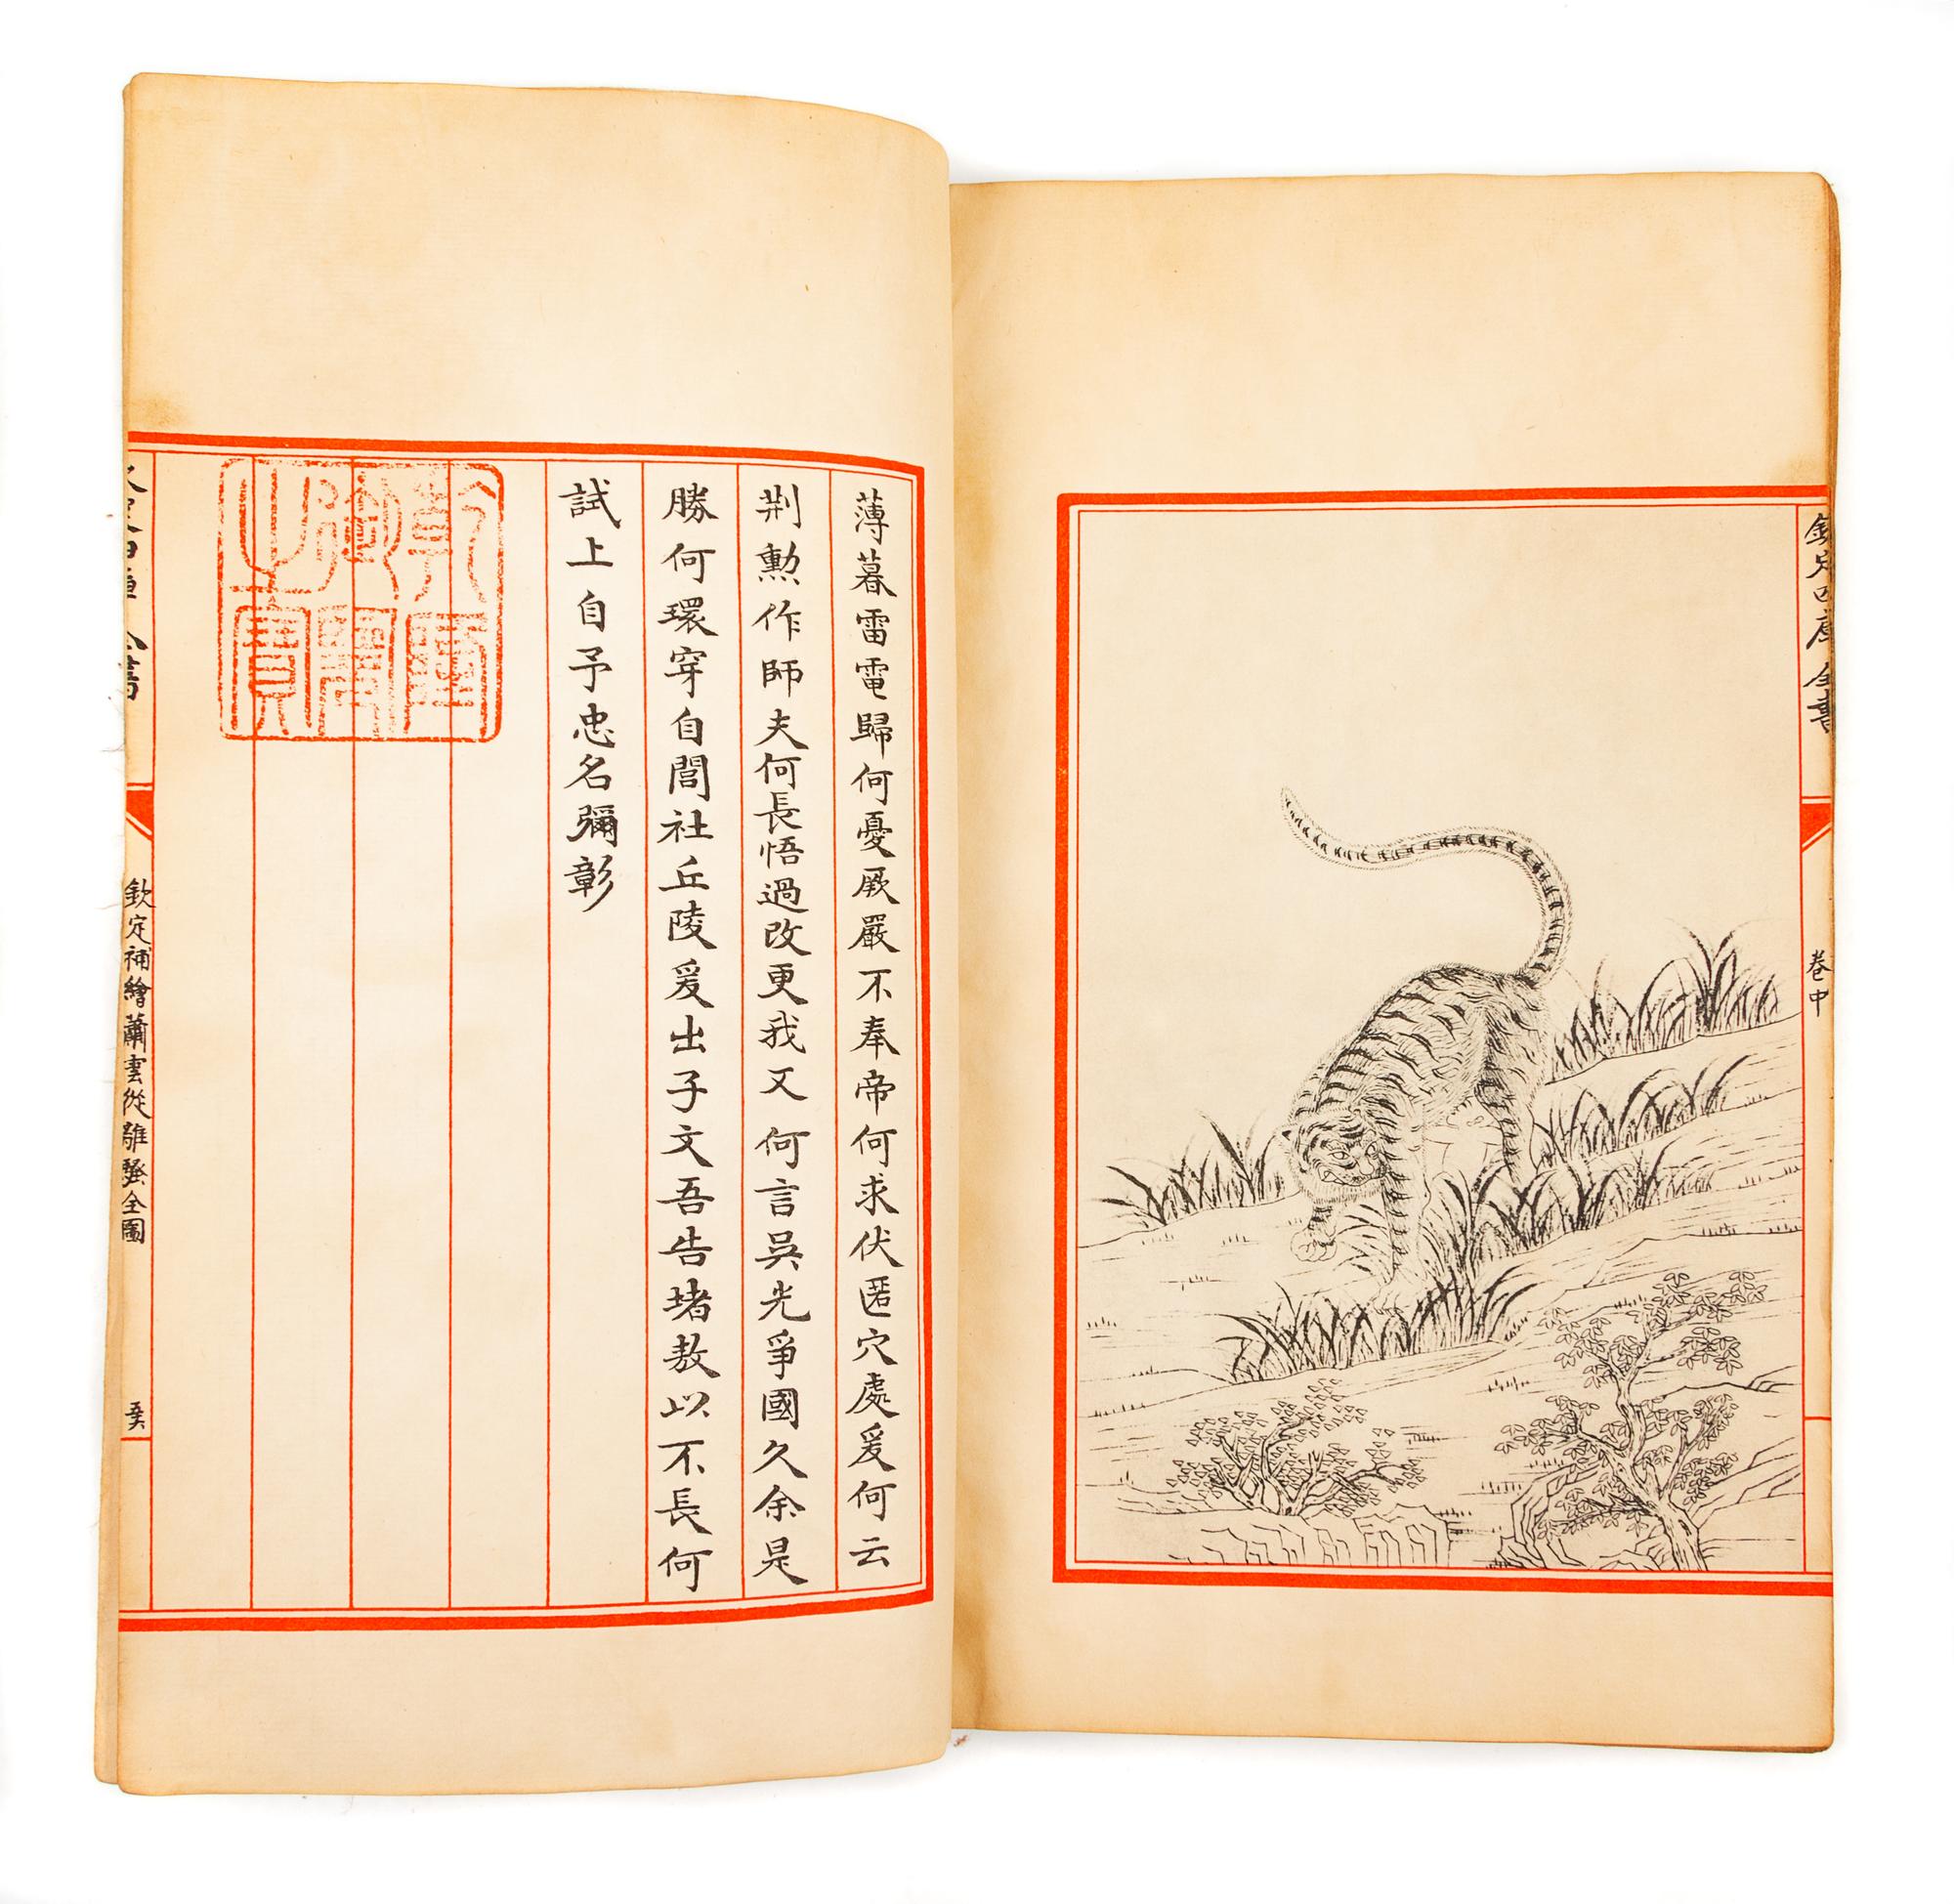 欽定四庫全書
卷中
薄暮雷電歸何憂厥嚴不奉帝何求伏匿穴處爰何云
荆勲作師夫何長悟過改更我又何言吳光爭國久余是
勝何環穿自閭社丘陵爰出子文吾告堵敖以不長何
試上自予忠名彌彰
乾隆
御覽
之寶
欽定四庫全書
欽定補繪蕭雲從離騷全圖